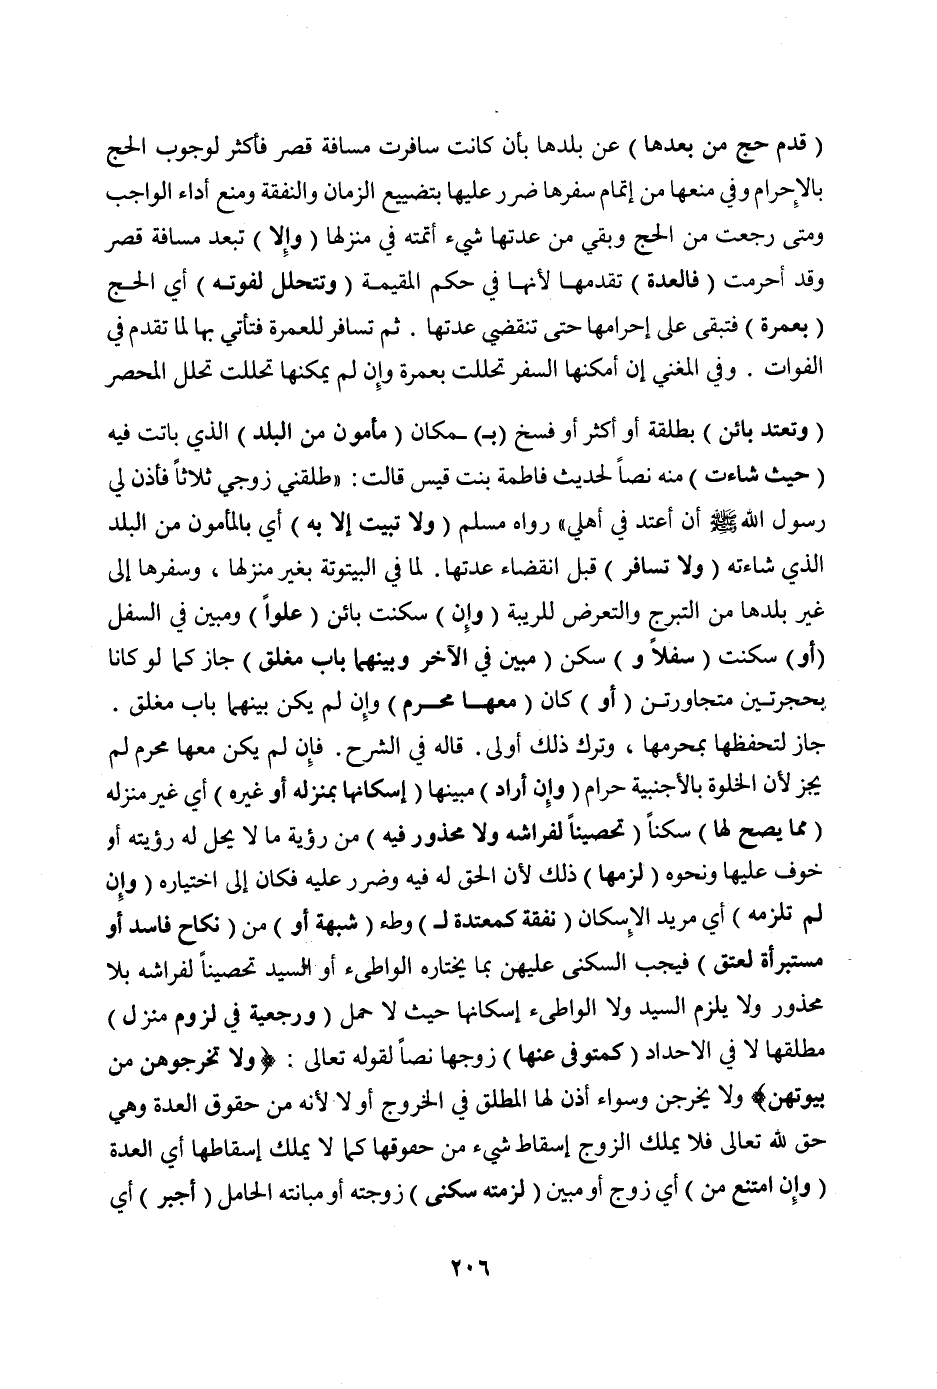 ( قدم حج من بعدها ) عن بلدها بأن كانت سافرت مسافة قصر فأكثر لوجوب الحج
بالإحرام وفي منعها من إتمام سفرها ضرر عليها بتضييع الزمان والنفقة ومنع أداء الواجب
ومتى رجعت من الحج وبقي من عدتها شيء أتمته في منزلها ( وإلا ) تبعد مسافة قصر
وقد أحرمت ( فالعدة ) تقدمها لأنها في حكم المقيمة ( وتتحلل لفوته ) أي الحج
( بعمرة ) فتبقى على إحرامها حتى تنقضي عدتها . ثم تسافر للعمرة فتأتي بها لما تقدم في
الفوات . وفي المغني إن أمكنها السفر تحللت بعمرة وإن لم يمكنها تحللت تحلل المحصر
( وتعتد بائن ) بطلقة أو أكثر أو فسخ (بـ) ـمكان ( مأمون من البلد ) الذي باتت فيه
( حيث شاءت ) منه نصاً لحديث فاطمة بنت قيس قالت : «طلقني زوجي ثلاثاً فأذن لي
رسول الله ﷺ أن أعتد في أهلي» رواه مسلم ( ولا تبيت إلا به ) أي بالمأمون من البلد
الذي شاءته ( ولا تسافر ) قبل انقضاء عدتها . لما في البيتوتة بغير منزلها ، وسفرها إلى
غير بلدها من التبرج والتعرض للريبة ( وإن ) سكنت بائن ( علواً ) ومبين في السفل
(أو) سكنت ( سفلاً و ) سكن ( مبين في الآخر وبينهما باب مغلق ) جاز كما لو كانا
بحجرتين متجاورتن ( أو ) كان ( معها محرم ) وإن لم يكن بينهما باب مغلق .
جاز لتحفظها بمحرمها ، وترك ذلك أولى . قاله في الشرح . فإن لم يكن معها محرم لم
يجز لأن الخلوة بالأجنبية حرام ( وإن أراد ) مبينها ( إسكانها بمنزله أو غيره ) أي غير منزله
( مما يصح لها ) سكناً ( تحصيناً لفراشه ولا محذور فيه ) من رؤية ما لا يحل له رؤيته أو
خوف عليها ونحوه ( لزمها ) ذلك لأن الحق له فيه وضرر عليه فكان إلى اختياره ( وإن
لم تلزمه ) أي مريد الإسكان ( نفقة كمعتدة لـ ) وطء ( شبهة أو ) من ( نكاح فاسد أو
مستبرأة لعتق ) فيجب السكنى عليهن بما يختاره الواطىء أو السيد تحصيناً لفراشه بلا
محذور ولا يلزم السيد ولا الواطىء إسكانها حيث لا حمل ( ورجعية في لزوم منزل )
مطلقها لا في الاحداد ( كمتوفى عنها ) زوجها نصاً لقوله تعالى : ﴿ولا تخرجوهن من
بيوتهن﴾ ولا يخرجن وسواء أذن لها المطلق في الخروج أو لا لأنه من حقوق العدة وهي
حق لله تعالى فلا يملك الزوج إسقاط شيء من حفوقها كما لا يملك إسقاطها أي العدة
( وإن امتنع من ) أي زوج أو مبين ( لزمته سكنى ) زوجته أو مبانته الحامل ( أجبر ) أي
٢٠٦